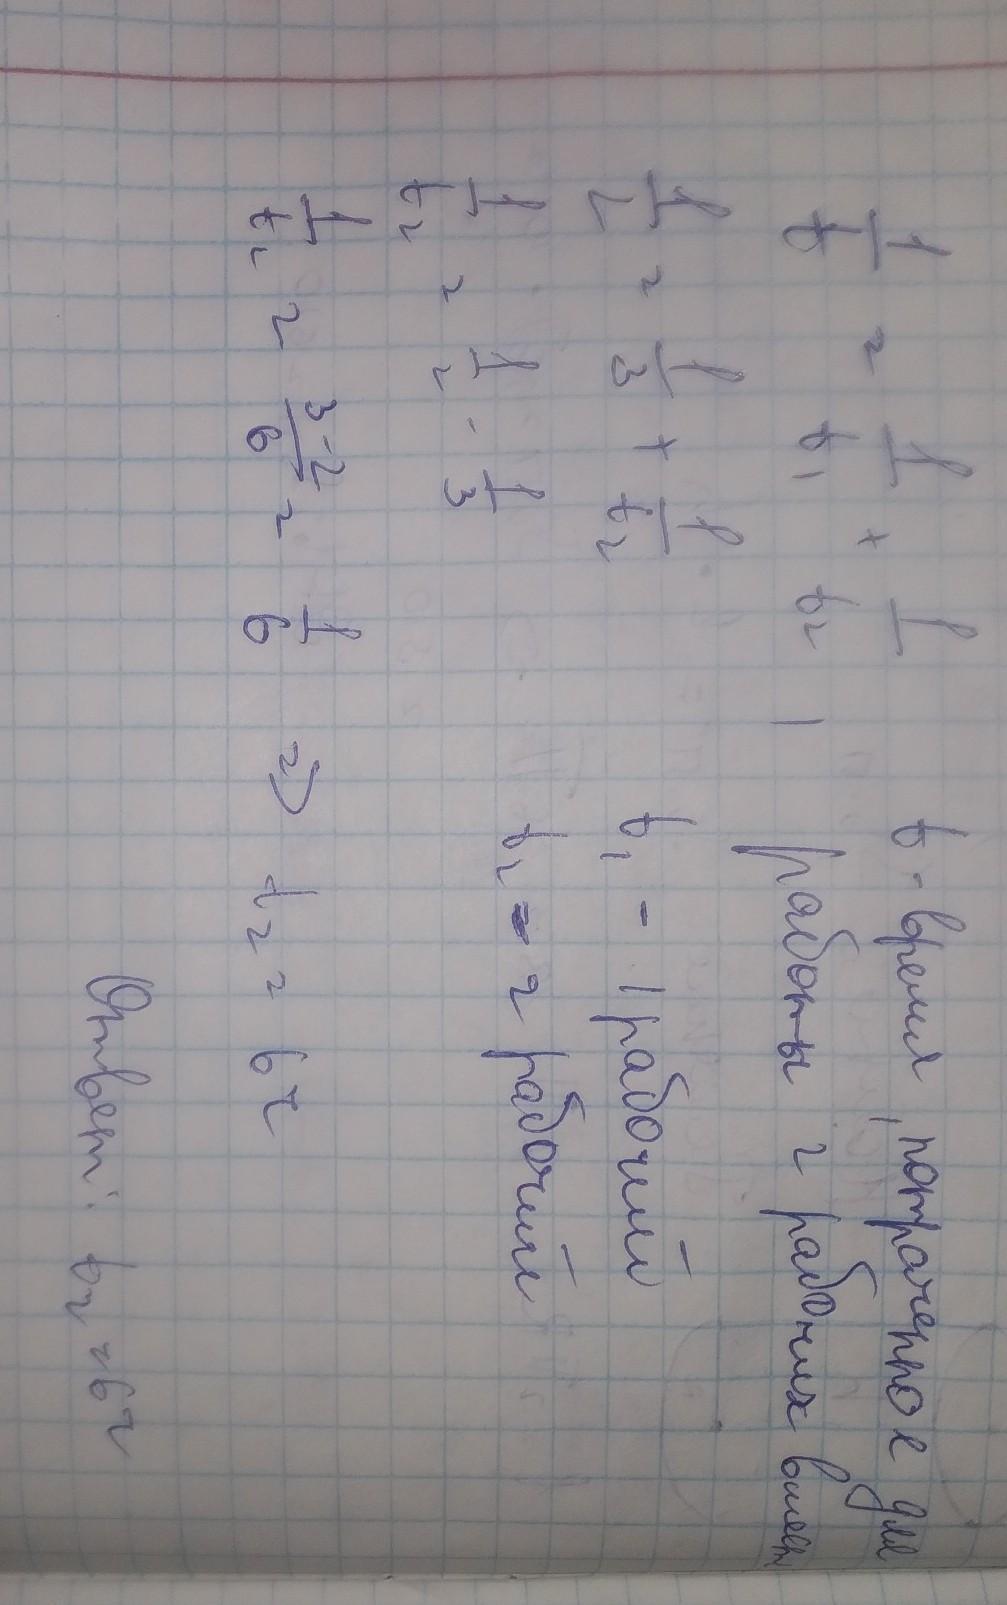 1/t = 1/t₁ + 1/t₂ , t - время, потраченное для
работы 2 рабочих вмест
1/2 = 1/3 + 1/t₂ t₁ - 1 рабочий
1/t₂ = 1/2 - 1/3 t₂ - 2 рабочий
1/t₂ = 3-2/6 = 1/6 => t₂ = 6ч
Ответ: t₂ = 6ч